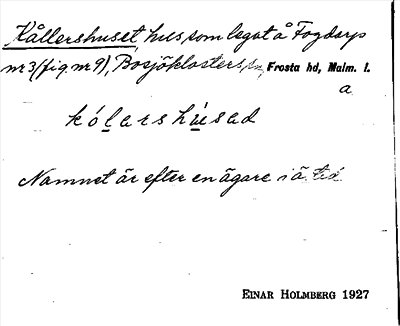 Kållershuset, hus som legat å Fogdarp
nr 3 (fig. nr 9), Bosjöklosters sn, Frosta hd, Malm. l.
a
kólarshúsad
Namnet är efter en ägare i ä. tid.
EINAR HOLMBERG 1927